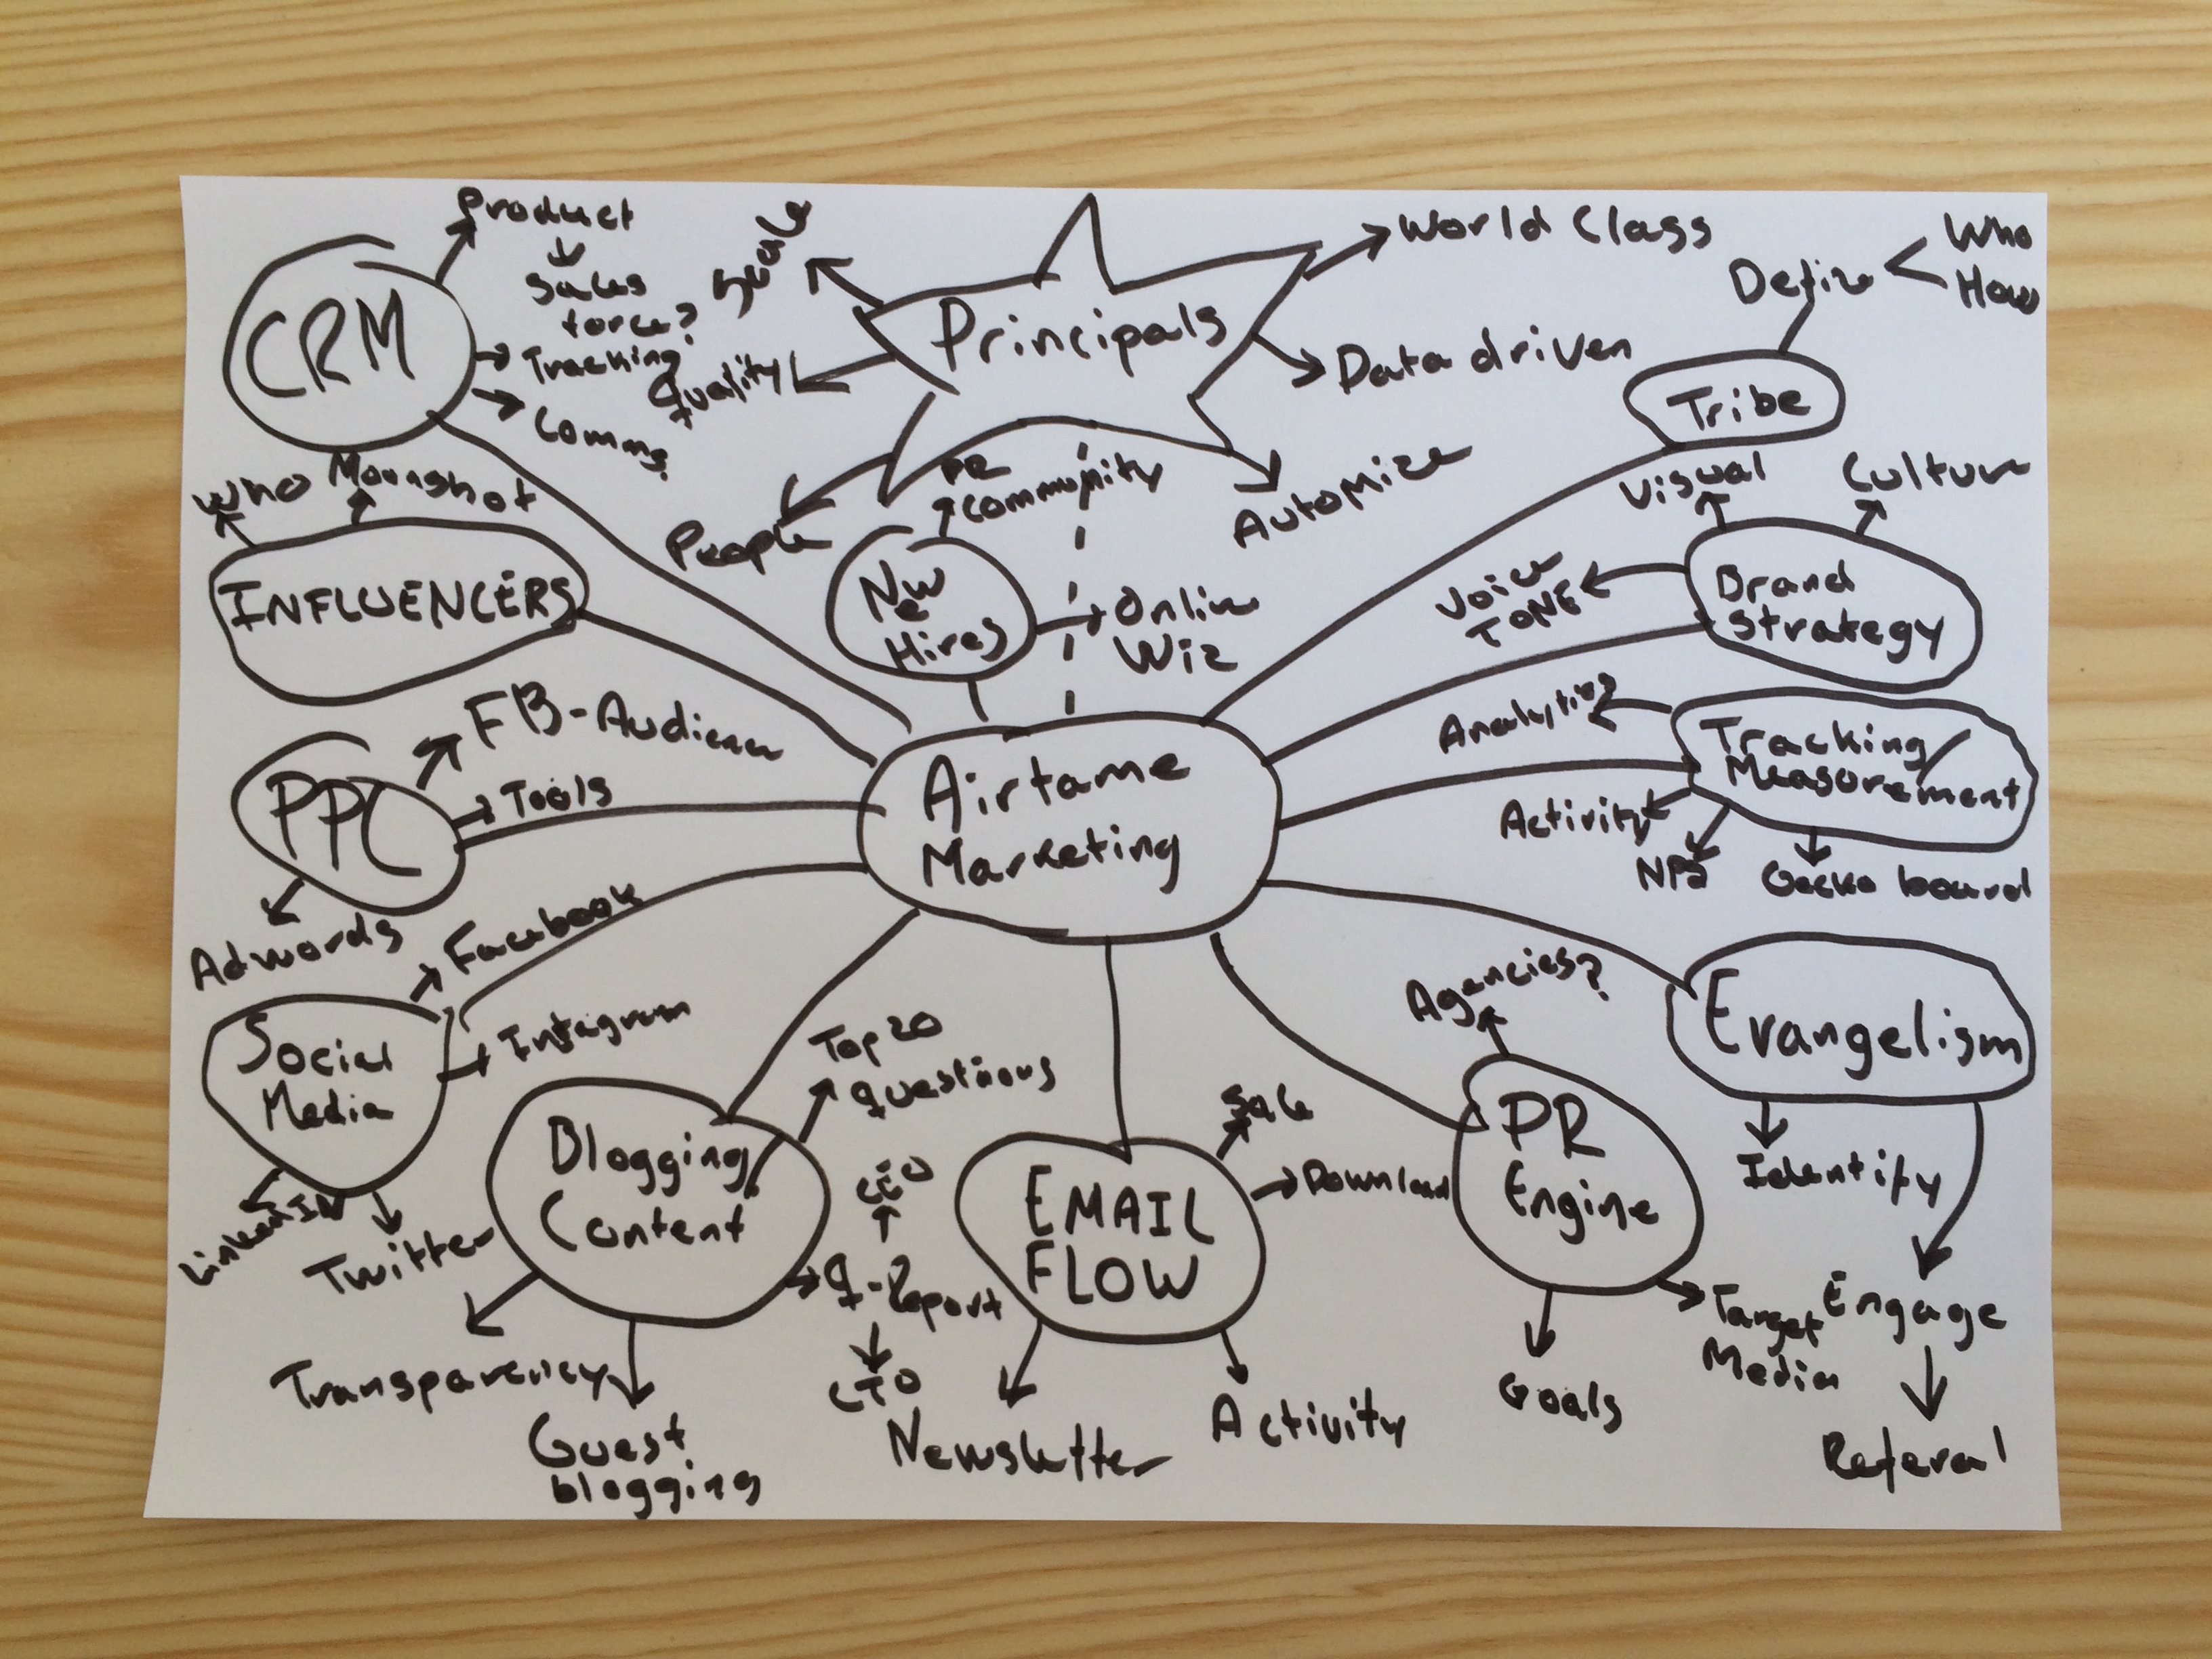 CRM
Product
Sales
force?
Tracking?
Comms
Scale
Quality
Principals
World Class
Data driven
Automize
People
Define
Who
How
Tribe
Who
Moonshot
INFLUENCERS
PR
Community
New
Hires
Online
Wiz
Visual
Culture
Voice
TONE
Brand
Strategy
PPC
FB-Audience
Tools
Adwords
Airtame
Marketing
Tracking/
Measurement
Analytics
Activity
NPS
Gecko board
Social
Media
Facebook
Instagram
LinkedIN
Twitter
Blogging/
Content
Top 20
questions
Q-Report
CEO
CTO
Transparency
Guest
blogging
EMAIL
FLOW
Sale
Download
Newsletter
Activity
PR
Engine
Agencies?
Goals
Target
Media
Evangelism
Identify
Engage
Referal